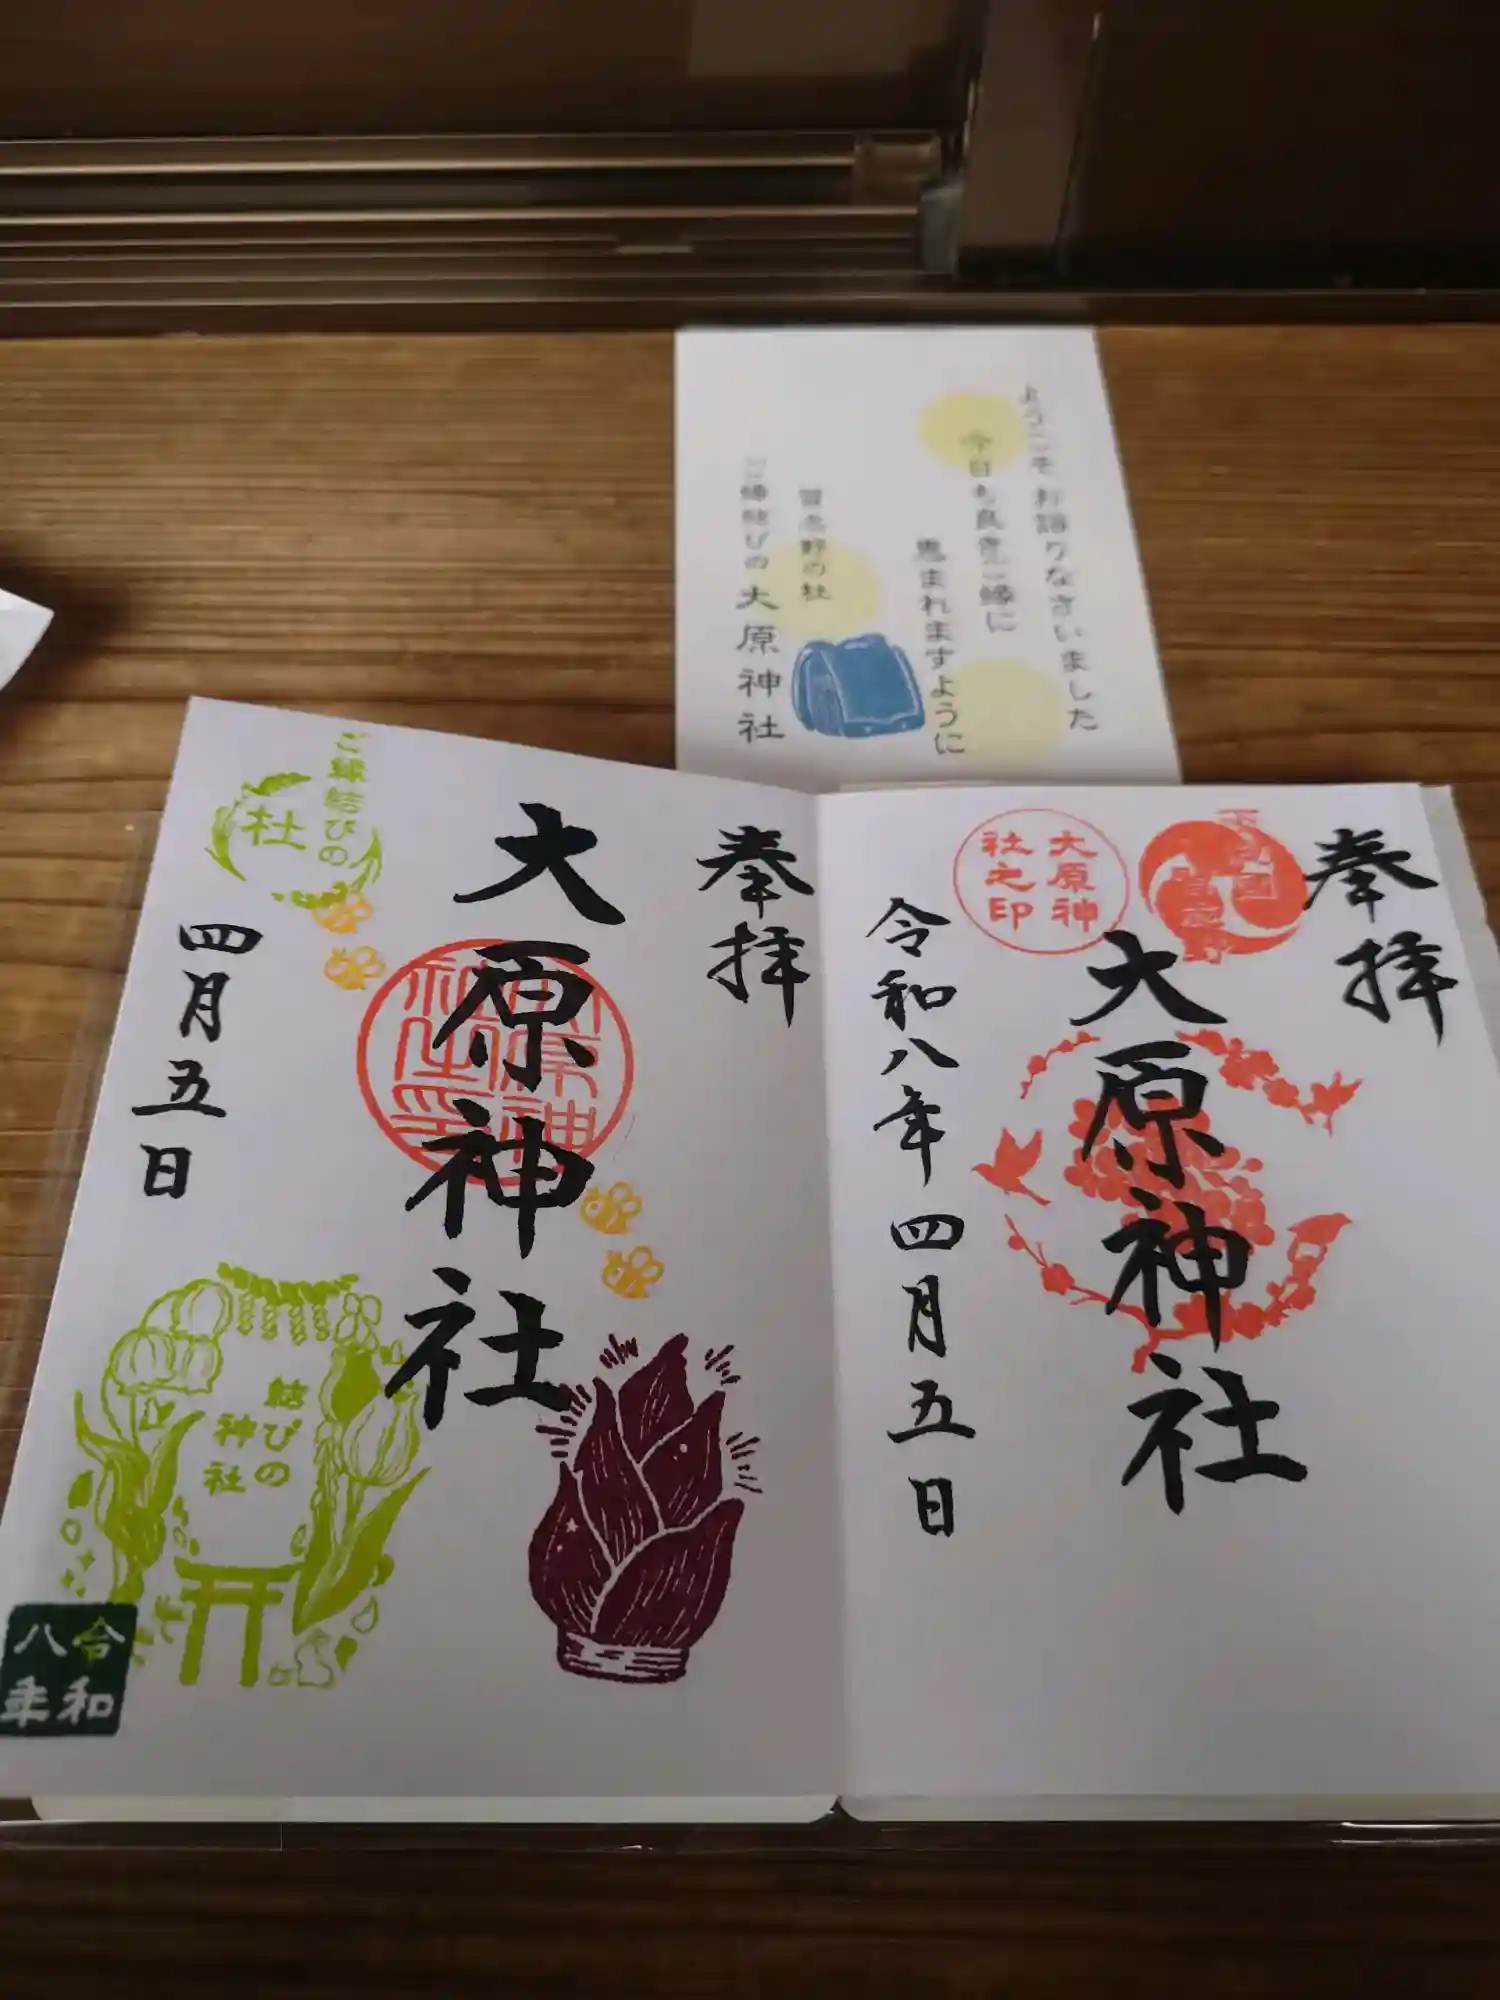 ようこそ お詣りなさいました
今日も良きご縁に
恵まれますように
習志野の杜
ご縁結びの 大原神社
奉拝
下総国
習志野
大原神社之印
大原神社
令和八年四月五日
奉拝
大原神社
大原神社之印
ご縁結びの
杜
四月五日
結びの
神社
令和
八年